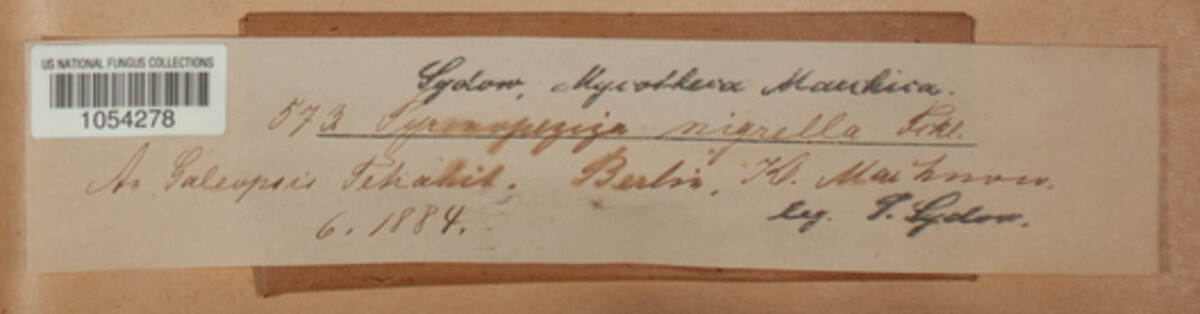 US NATIONAL FUNGUS COLLECTIONS
1054278
Sydow, Mycotheca Marchica.
573 Pyrenopeziza nigrella Fckl.
An Galeopsis Tetrahit. Berlin, Kl. Machnow.
6. 1884.
leg. P. Sydow.